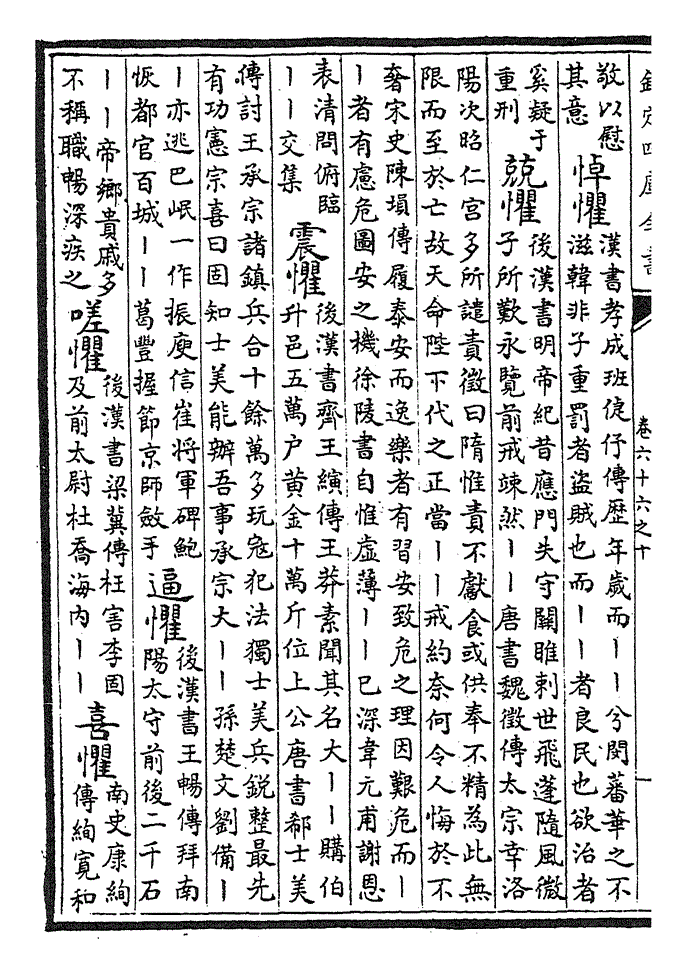 欽定四庫全書 卷六十六之十 一
敬以慰
其意
悼懼
漢書孝成班倢伃傳歷年歲而丨丨兮閔蕃華之不
滋韓非子重罰者盜賊也而丨丨者良民也欲治者
奚疑于
重刑
兢懼
後漢書明帝紀昔應門失守關雎刺世飛蓬隨風微
子所歎永覽前戒竦然丨丨唐書魏徵傳太宗幸洛
陽次昭仁宮多所譴責徵曰隋惟責不獻食或供奉不精為此無
限而至於亡故天命陛下代之正當丨丨戒約奈何令人悔於不
奢宋史陳塤傳履泰安而逸樂者有習安致危之理因艱危而丨
丨者有慮危圖安之機徐陵書自惟虛薄丨丨已深韋元甫謝恩
表清問俯臨
丨丨交集
震懼
後漢書齊王縯傳王莽素聞其名大丨丨購伯
升邑五萬户黄金十萬斤位上公唐書郗士美
傳討王承宗諸鎮兵合十餘萬多玩寇犯法獨士美兵銳整最先
有功憲宗喜曰固知士美能辦吾事承宗大丨丨孫楚文劉備丨
丨亦逃巴岷一作振庾信崔將軍碑鮑
恢都官百城丨丨葛豐握節京師斂手
逼懼
後漢書王暢傳拜南
陽太守前後二千石
丨丨帝鄉貴戚多
不稱職暢深疾之
嗟懼
後漢書梁冀傳枉害李固
及前太尉杜喬海内丨丨
喜懼
南史康絢
傳絢寛和